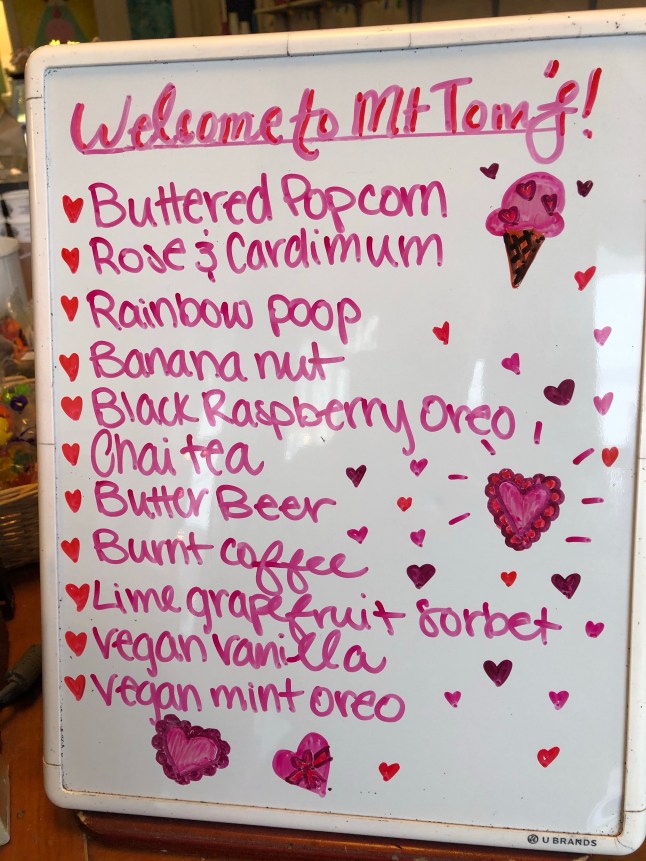 Welcome to Mt Tom's!
Buttered Popcorn
Rose & Cardimum
Rainbow poop
Banana nut
Black Raspberry Oreo
Chai tea
Butter Beer
Burnt coffee
Lime grapefruit sorbet
vegan vanilla
vegan mint oreo
U BRANDS